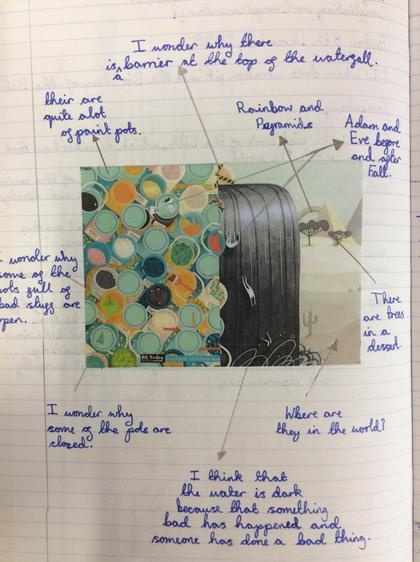 I wonder why there
is a barrier at the top of the waterfall.
their are
quite alot
of paint pots.
Rainbow and
Pyramids
Adam and
Eve before
and after
Fall.
I wonder why
some of the
pots full of
bad stuff are
open.
There
are trees
in a
dessert.
RE Today
I wonder why
some of the pots are
closed.
Where are
they in the world?
I think that
the water is dark
because that something
bad has happened and
someone has done a bad thing.